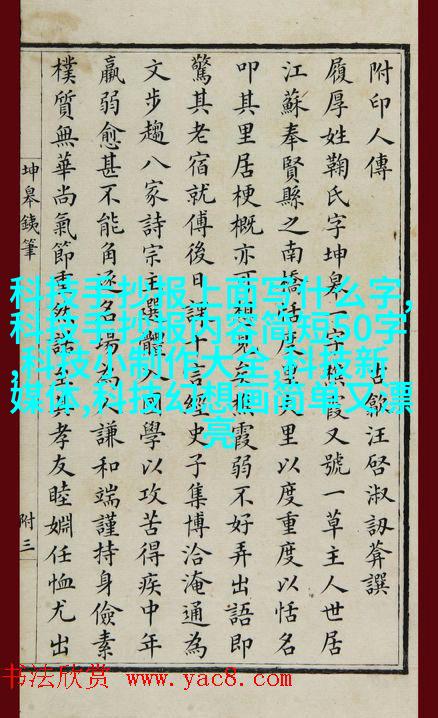 附印人傳 古歙汪啓淑訒葊譔
履厚姓鞠氏字坤皋一字樵霞又號一草主人世居
江蘇奉賢縣之南橋恬度里里以度重度以恬名
叩其里居梗概亦可想見矣樵霞弱不好弄出語即
驚其老宿就傅後日誦千言經史子集博洽淹通為
文步趨八家詩宗主選體入學以攻苦得疾中年
羸弱愈甚不能角逐名場為人謙和端謹持身儉素
樸質無華尚氣節重然諾至其孝友睦婣任恤尤出
坤皋銕筆 附三
科技手抄报上面写什么字,
科技手抄报内容简短50字
,科技小制作大全,科技新
媒体,科技幻想画简单又漂
亮
书法欣赏 www.yac8.com